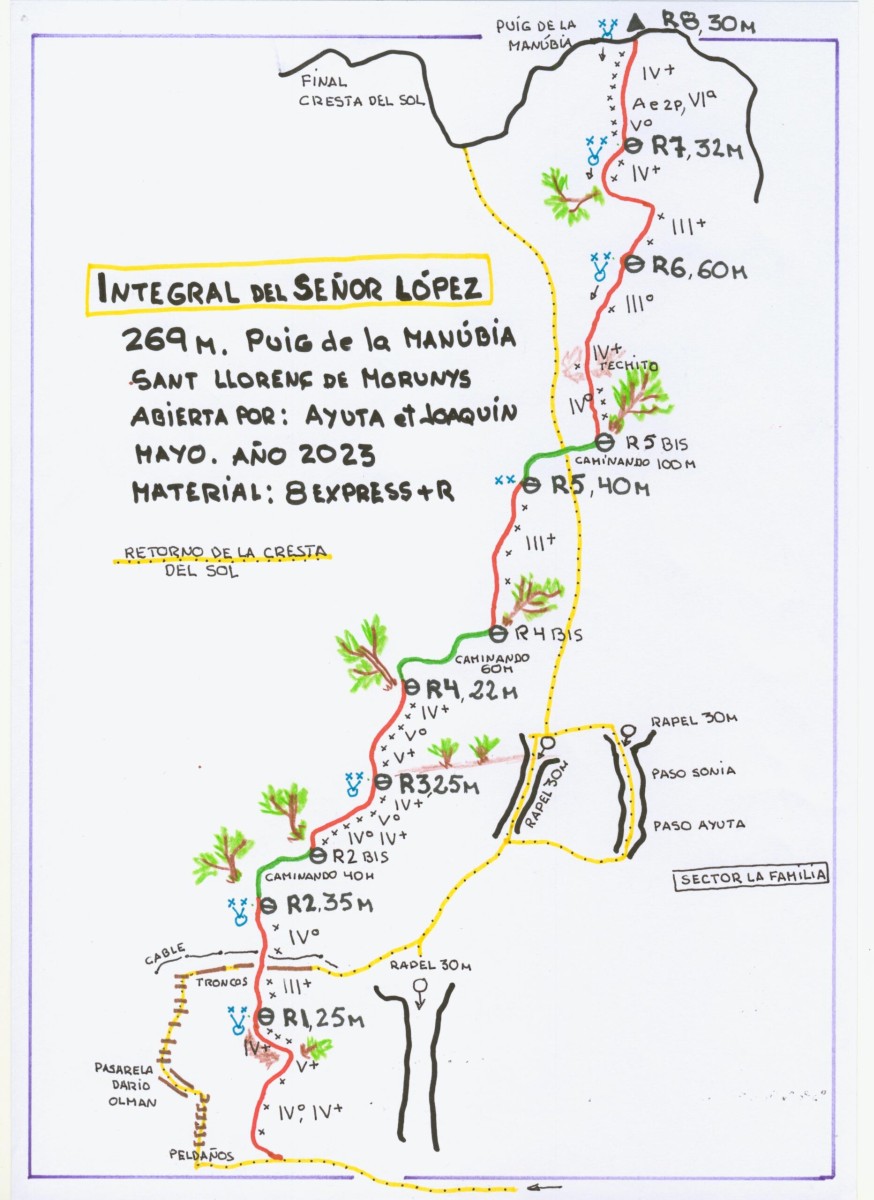 PUIG DE LA
MANÚBIA
R8, 30M
IV+
FINAL
CRESTA DEL SOL
Ae2P, VIª
Vº
R7, 32M
IV+
III+
R6, 60M
IIIº
IV+
TECHITO
IVº
R5 BIS
CAMINANDO 100M
R5, 40M
INTEGRAL DEL SEÑOR LÓPEZ
269 M. PUIG de la MANÚBIA
SANT LLORENÇ DE MORUNYS
ABIERTA POR: AYUTA et JOAQUÍN
MAYO. AÑO 2023
MATERIAL: 8 EXPRESS + R
RETORNO DE LA CRESTA
DEL SOL
III+
R4 BIS
CAMINANDO
60M
R4, 22M
IV+
Vº
V+
RAPEL 30M
PASO SONIA
RAPEL 30M
PASO AYUTA
R3,25M
IV+
Vº
IVº IV+
R2 BIS
CAMINANDO 40M
SECTOR LA FAMILIA
R2,35M
IVº
CABLE
TRONCOS
III+
RAPEL 30M
R1,25M
IV+
V+
PASARELA
DARIO
OLMAN
IVº, IV+
PELDAÑOS